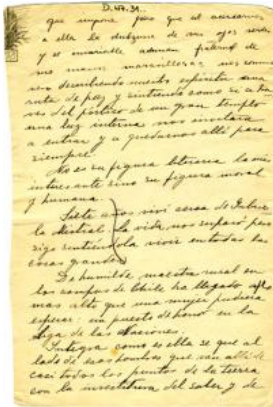 D.47.31.
que impone para que al acercarnos
a ella la dulzura de sus ojos verdes
y el invariable ademán fraternal de
sus manos maravillosas, nos
vera descubriendo nuestro espíritu una
ruta de paz, y sintiendo como si a tra
ves del pórtico de un gran templo
una luz interna nos invitara
a entrar y a quedarnos allí para
siempre.
No es su figura literaria la más
interesante sino su figura moral
y humana.
Siete años viví cerca de Gabrie
la Mistral. La vida nos separó pero
sigo sintiéndola vivir en todas las
cosas grandes.
De humilde maestra rural en
los campos de Chile ha llegado a lo
mas alto que una mujer pudiera
esperar: un puesto de honor en la
Liga de las Naciones.
Integra como es ella se que al
lado de esos hombres que van allí de
casi todos los puntos de la tierra
con la investidura del saber y de